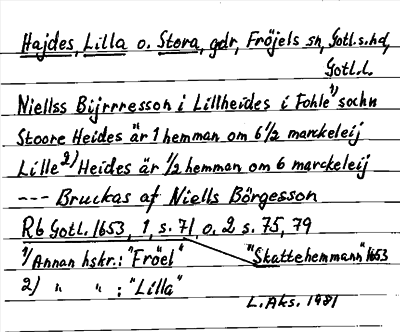 Hajdes, Lilla o. Stora, gdr, Fröjels sn, Gotl.s.hd,
Gotl.l.
Niellss Bijrrresson i Lillheides i Fohle¹⁾ sochn
Stoore Heides är 1 hemman om 6 1/2 marckeleij
Lille²⁾ Heides är 1/2 hemman om 6 marckeleij
--- Bruckas af Niells Börgesson
Rb Gotl. 1653, 1, s. 71, o. 2 s. 75, 79
1) Annan hskr.: "Fröel" "Skattehemmann" 1653
2) " " : "Lilla"
L. Aks. 1981